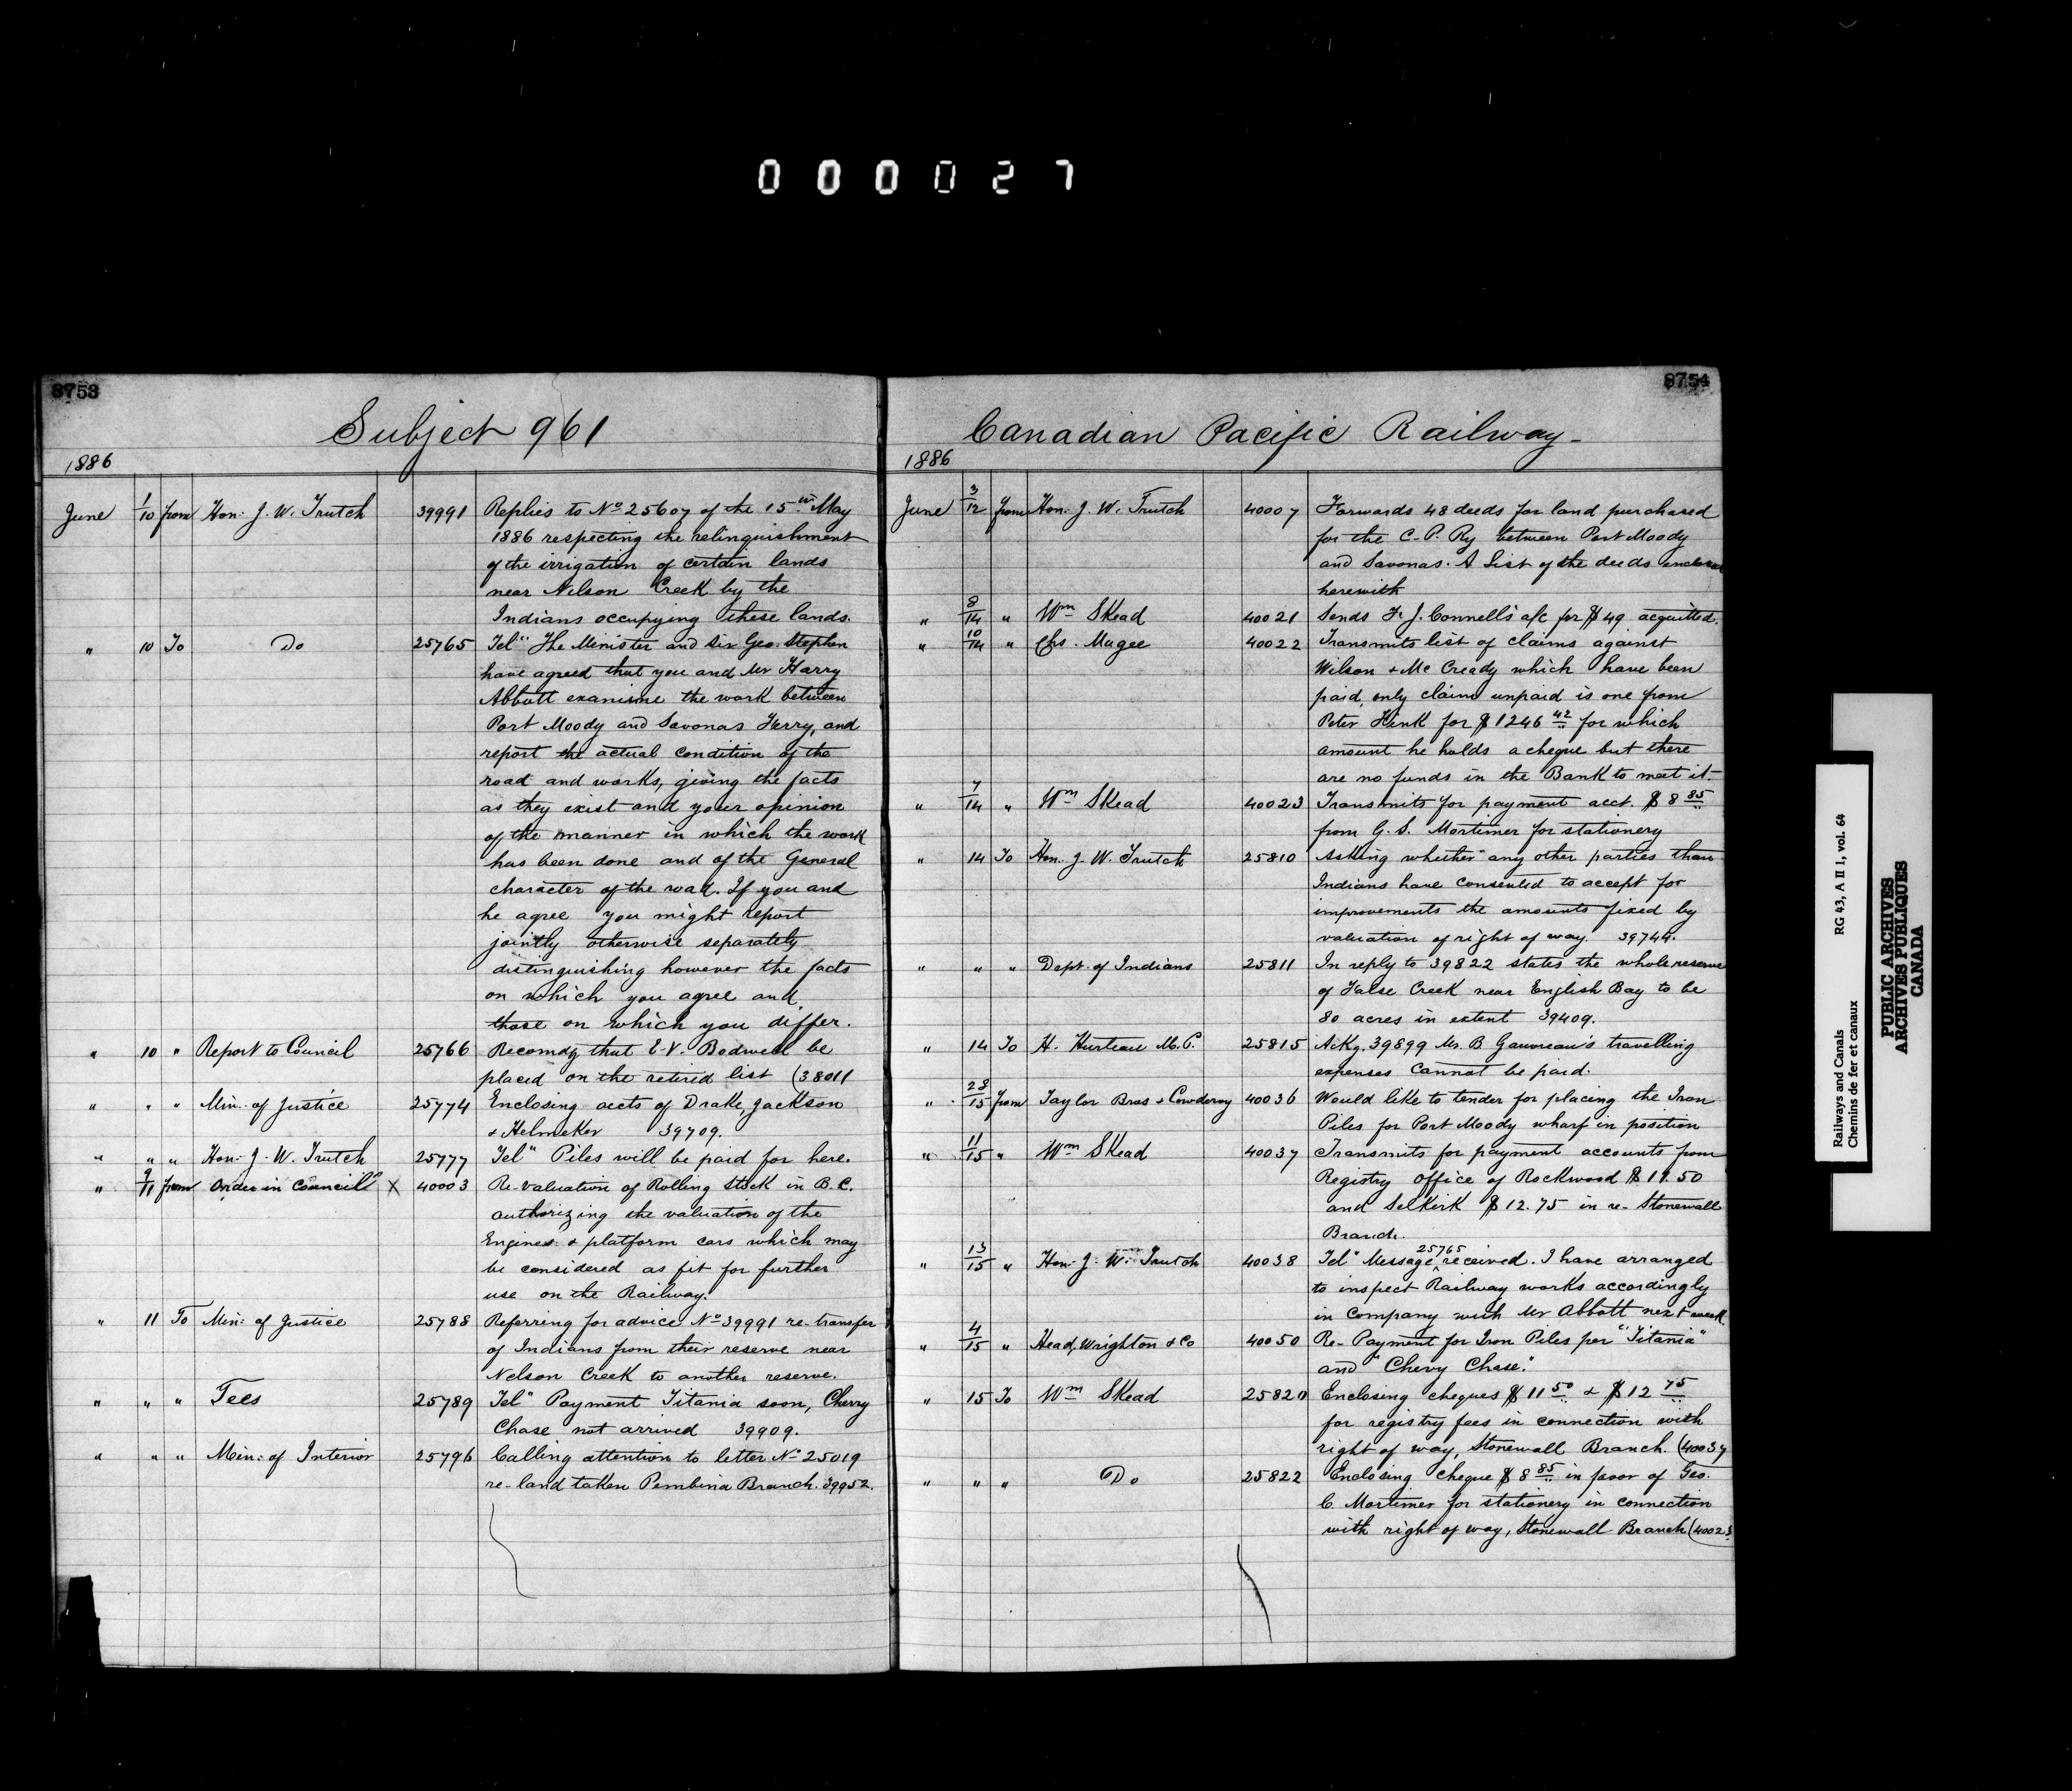 000027
8753
Subject 961
1886
June 1/10 from Hon: J. W. Trutch 39991 Replies to No 25607 of the 15th May
1886 respecting the relinquishment
of the irrigation of certain lands
near Nelson Creek by the
Indians occupying these lands.
" 10 To Do 25765 Tel" The Minister and Sir Geo. Stephen
have agreed that you and Mr Harry
Abbott examine the work between
Port Moody and Savonas Ferry, and
report the actual condition of the
road and works, giving the facts
as they exist and your opinion
of the manner in which the work
has been done and of the General
character of the road. If you and
he agree you might report
jointly otherwise separately
distinguishing however the facts
on which you agree and
those on which you differ.
" 10 " Report to Council 25766 Recomdg that E. V. Bodwell be
placed on the retired list (38011
" " " Min: of Justice 25774 Enclosing accts of Drake, Jackson
& Helmeken 39709.
" " " Hon: J. W. Trutch 25777 Tel" Piles will be paid for here.
" 9/11 from Order in Council X 40003 Re-valuation of Rolling Stock in B.C.
authorizing the valuation of the
Engines & platform cars which may
be considered as fit for further
use on the Railway.
" 11 To Min: of Justice 25788 Referring for advice No 39991 re-transfer
of Indians from their reserve near
Nelson Creek to another reserve.
" " " Tees 25789 Tel" Payment Titania soon, Cherry
Chase not arrived 39909.
" " " Min: of Interior 25796 Calling attention to letter No 25019
re-land taken Pembina Branch. 39952.
8754
Canadian Pacific Railway-
1886
June 3/12 from Hon. J. W. Trutch 40007 Forwards 48 deeds for land purchased
for the C.P. Ry between Port Moody
and Savonas. A List of the deeds enclosed
herewith
" 8/14 " Wm Skead 40021 Sends F. J. Connell's a/c for $49 acquitted.
" 10/14 " Chs. Magee 40022 Transmits list of claims against
Wilson & McCready which have been
paid, only claim unpaid is one from
Peter Fink for $1246 42 for which
amount he holds a cheque but there
are no funds in the Bank to meet it.
" 7/14 " Wm Skead 40023 Transmits for payment acct. $8 85
from G. S. Mortimer for stationery
" 14 To Hon. J. W. Trutch 25810 Asking whether any other parties than
Indians have consented to accept for
improvements the amounts fixed by
valuation of right of way. 39744.
" " " Dept. of Indians 25811 In reply to 39822 states the whole reserve
of False Creek near English Bay to be
80 acres in extent 39409.
" 14 To H. Hurteau M.P. 25815 Ackg. 39899 Mr. B Gauvreau's travelling
expenses cannot be paid.
" 28/15 from Taylor Bros & Cowderoy 40036 Would like to tender for placing the Iron
Piles for Port Moody wharf in position
" 11/15 " Wm Skead 40037 Transmits for payment accounts from
Registry Office of Rockwood $11.50
and Selkirk $12.75 in re- Stonewall
Branch.
" 13/15 " Hon: J. W. Trutch 40038 Tel" Message 25765 received. I have arranged
to inspect Railway works accordingly
in company with Mr Abbott next week.
" 4/15 " Head, Wrighton & Co 40050 Re- Payment for Iron Piles per "Titania"
and "Chevy Chase."
" 15 To Wm Skead 25820 Enclosing cheques $11 50 & $12 75
for registry fees in connection with
right of way, Stonewall Branch. (40037
" " " Do 25822 Enclosing cheque $8 85 in favor of Geo.
C. Mortimer for stationery in connection
with right of way, Stonewall Branch (40023
Railways and Canals RG 43, A II 1, vol. 64
Chemins de fer et canaux
PUBLIC ARCHIVES
ARCHIVES PUBLIQUES
CANADA